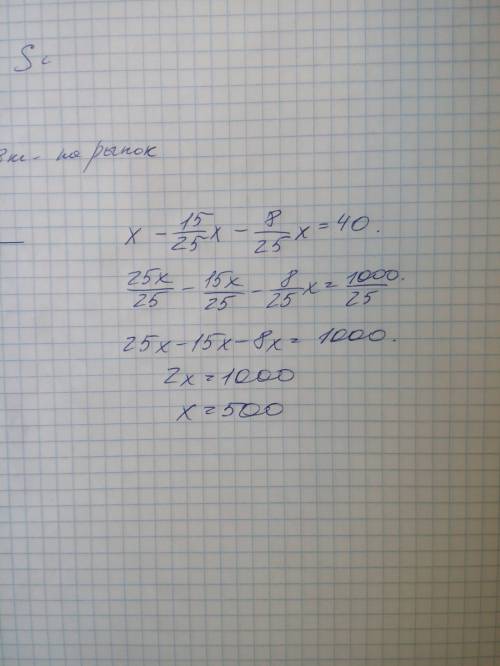 S=
на рынок
x - 15/25 x - 8/25 x = 40.
25x/25 - 15x/25 - 8/25 x = 1000/25.
25x - 15x - 8x = 1000.
2x = 1000
x = 500